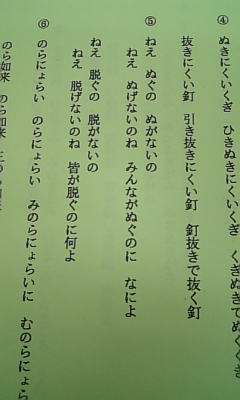 ④ ぬきにくいくぎ ひきぬきにくいくぎ くぎぬきでぬくくぎ
抜きにくい釘 引き抜きにくい釘 釘抜きで抜く釘
⑤ ねえ ぬぐの ぬがないの
ねえ ぬげないのね みんながぬぐのに なによ
ねえ 脱ぐの 脱がないの
ねえ 脱げないのね 皆が脱ぐのに何よ
⑥ のらにょらい のらにょらい みのらにょらいに むのらにょら
のら如来 のら如来